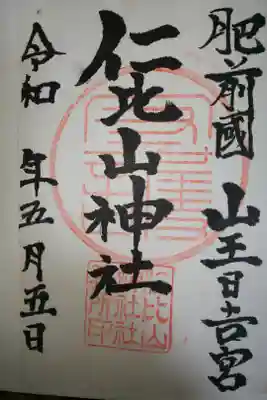 肥前國 山王日吉宮
仁比山神社
令和 年五月五日